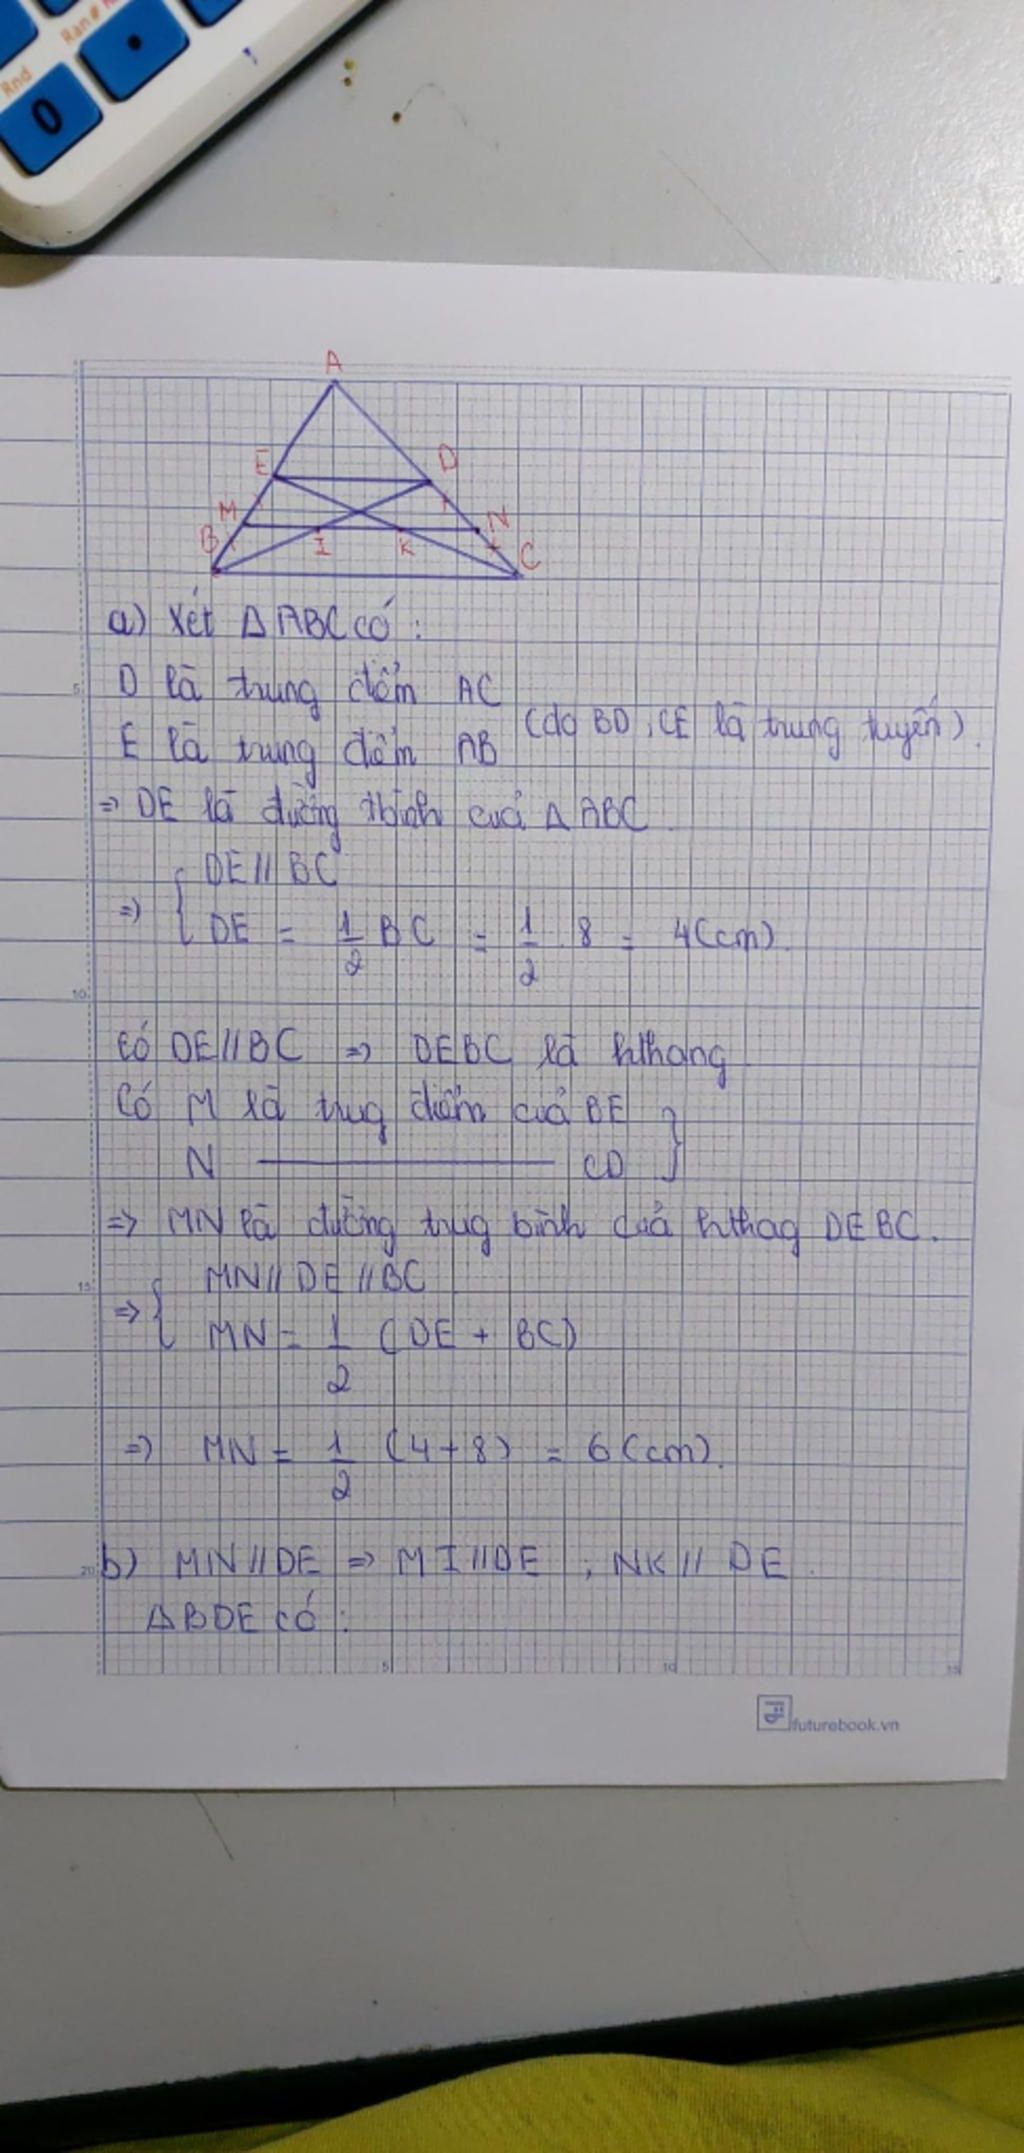 Rnd
Ran#
0
A
E
D
M
N
B
I
K
C
a) Xét Δ ABC có:
D là trung điểm AC
E là trung điểm AB (do BD, CE là trung tuyến).
=> DE là đường tbình của Δ ABC.
DE // BC
=> { DE = 1/2 BC = 1/2 . 8 = 4(cm)
Có DE // BC => DEBC là hthang
Có M là trug điểm của BE }
N ———— CD
=> MN là đường trug bình của hthag DEBC.
MN // DE // BC
=> { MN = 1/2 (DE + BC)
=> MN = 1/2 (4+8) = 6(cm).
b) MN // DE => MI // DE , NK // DE.
ΔBDE có:
5
10
15
20
5
10
15
futurebook.vn